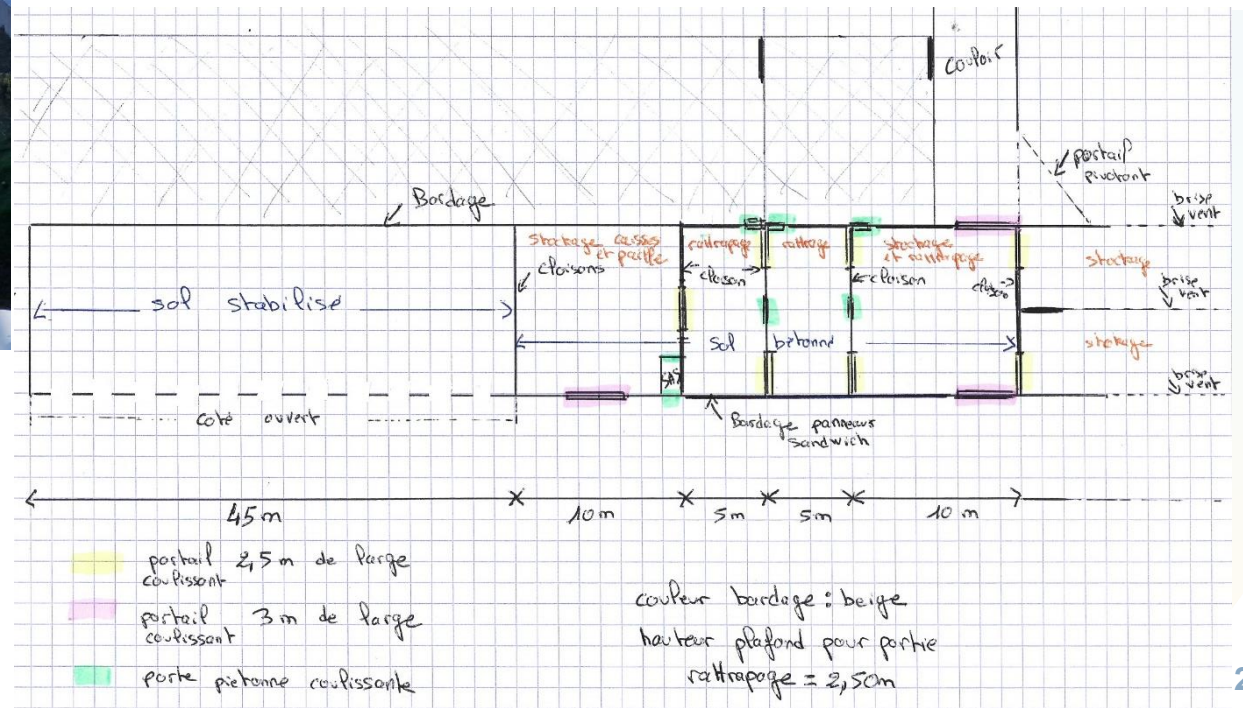 couloir
portail
pivotant
Bardage
brise
vent
stockage caisses
et paille
rattrapage
rattrage
stockage
et rattrapage
stockage
cloisons
cloison
cloison
cloison
brise
vent
sol stabilisé
sol bétonné
stockage
SAS
brise
vent
coté ouvert
Bardage panneaux
sandwich
45 m
10 m
5 m
5 m
10 m
portail 2,5 m de large
coulissant
portail 3 m de large
coulissant
porte pietonne coulissante
couleur bardage : beige
hauteur plafond pour partie
rattrapage = 2,50m
2